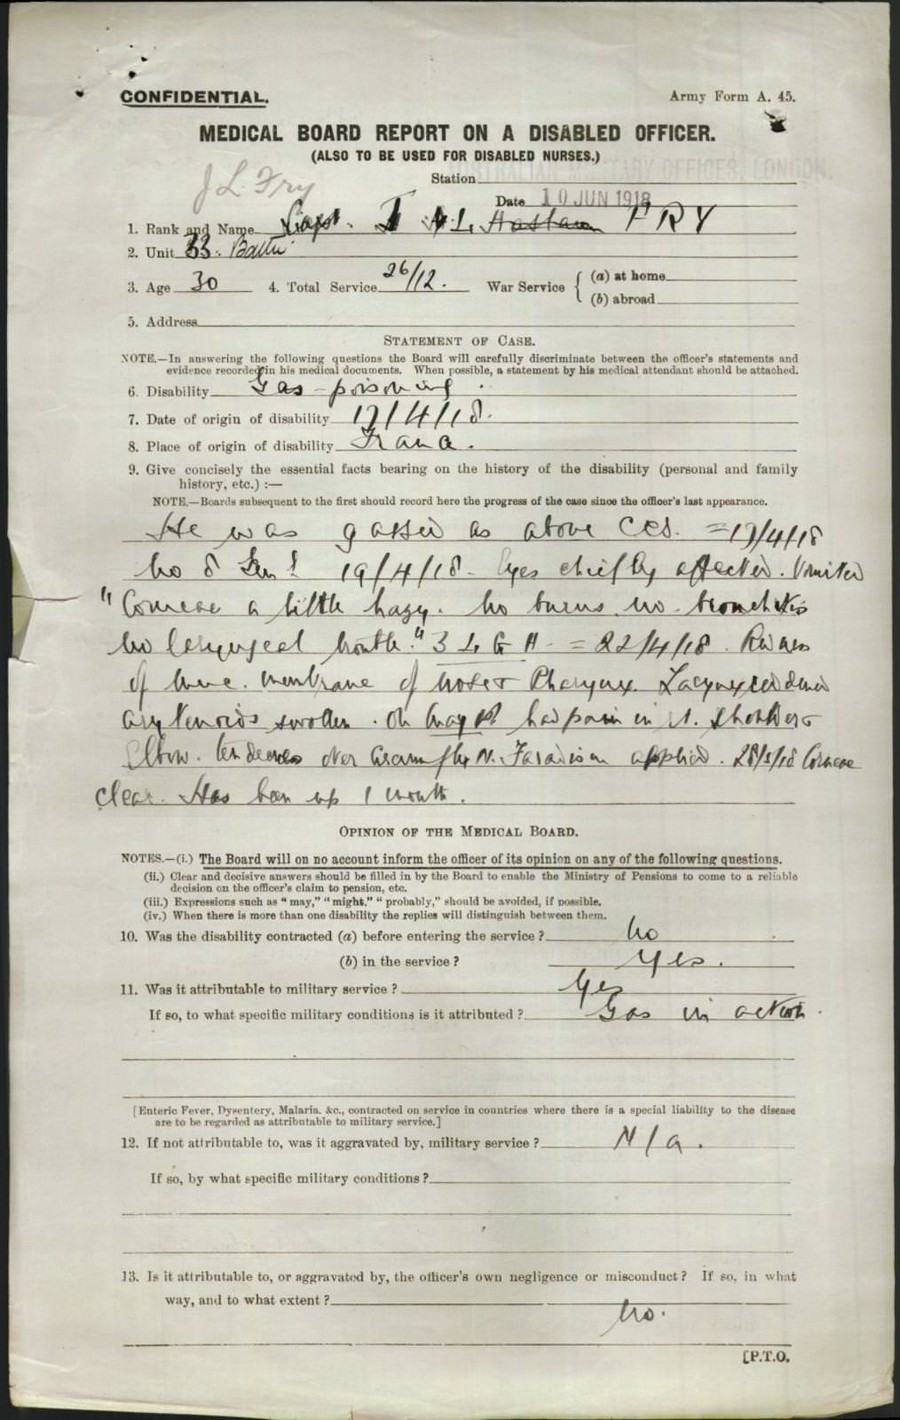 CONFIDENTIAL.
Army Form A. 45.
MEDICAL BOARD REPORT ON A DISABLED OFFICER.
(ALSO TO BE USED FOR DISABLED NURSES.)
AUSTRALIAN MILITARY OFFICES, LONDON.
J L. Fry
Station
Date 10 JUN 1918
1. Rank and Name Capt. L. FRY
2. Unit 33. Battn
3. Age 30 4. Total Service 26/12. War Service (a) at home
(b) abroad
5. Address
STATEMENT OF CASE.
NOTE.—In answering the following questions the Board will carefully discriminate between the officer's statements and
evidence recorded in his medical documents. When possible, a statement by his medical attendant should be attached.
6. Disability Gas-poisoning.
7. Date of origin of disability 17/4/18.
8. Place of origin of disability France.
9. Give concisely the essential facts bearing on the history of the disability (personal and family
history, etc.) :—
NOTE.—Boards subsequent to the first should record here the progress of the case since the officer's last appearance.
He was gassed as above CCS. = 17/4/18
No 8 Genl. 19/4/18. Eyes chiefly affected. Vomited
"Corneae a little hazy. No burns no bronchitis
No laryngeal trouble." 3 L. G. H. = 22/4/18. Redness
of muc. membrane of nose & Pharynx. Larynx reddened
arytenoids swollen. On May 1st had pain in shoulder &
Elbow. Tenderness over circumflex N. Faradism applied. 28/5/18 Corneae
clear. Has been up 1 month.
OPINION OF THE MEDICAL BOARD.
NOTES.—(i.) The Board will on no account inform the officer of its opinion on any of the following questions.
(ii.) Clear and decisive answers should be filled in by the Board to enable the Ministry of Pensions to come to a reliable
decision on the officer's claim to pension, etc.
(iii.) Expressions such as "may," "might," "probably," should be avoided, if possible.
(iv.) When there is more than one disability the replies will distinguish between them.
10. Was the disability contracted (a) before entering the service ? No
(b) in the service ? Yes.
11. Was it attributable to military service ? Yes
If so, to what specific military conditions is it attributed ? Gas in action.
[Enteric Fever, Dysentery, Malaria, &c., contracted on service in countries where there is a special liability to the disease
are to be regarded as attributable to military service.]
12. If not attributable to, was it aggravated by, military service ? N/a.
If so, by what specific military conditions ?
13. Is it attributable to, or aggravated by, the officer's own negligence or misconduct ? If so, in what
way, and to what extent ? No.
[P.T.O.